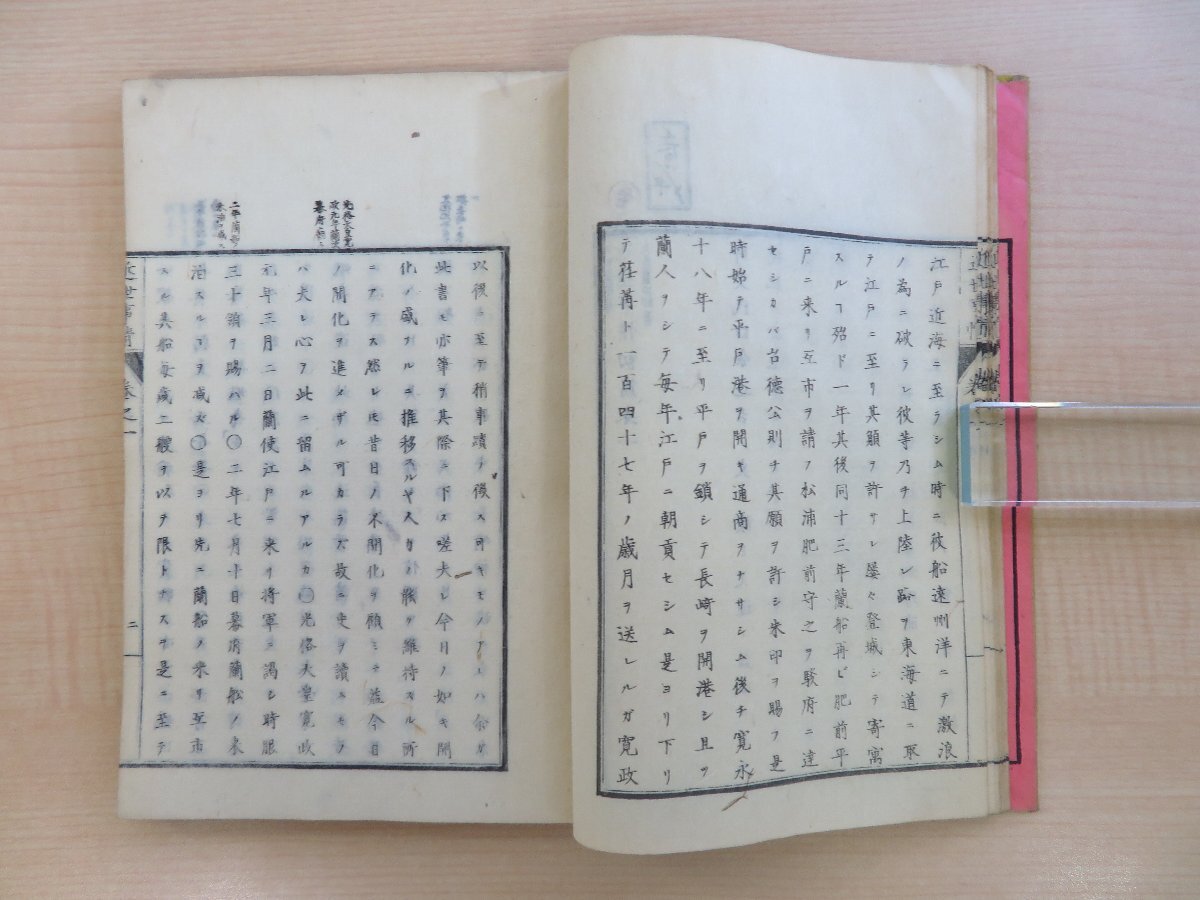 江戸近海ニ至ラシム時ニ彼船遠州洋ニテ激浪
ノ為ニ破ラレ彼等乃チ上陸シ路ヲ東海道ニ取
テ江戸ニ至リ其願ヲ許サレ屡々登城シテ寄寓
スルヿ殆ド一年其後同十三年蘭船再ビ肥前平
戸ニ来リ互市ヲ請フ松浦肥前守之ヲ駿府ニ達
セシカバ台徳公則チ其願ヲ許シ朱印ヲ賜フ是
時始テ平戸港ヲ開キ通商ヲナサシム後チ寛永
十八年ニ至リ平戸ヲ鎖シテ長崎ヲ開港シ且ツ
蘭人ヲシテ毎年江戸ニ朝貢セシム是ヨリ下リ
テ荏苒ト一百四十七年ノ歳月ヲ送レルガ寛政
以後ニ至テ稍事蹟ノ後ス可キモノアレハ余ガ
此書モ亦筆ヲ其際ニ下ス嗟夫レ今日ノ如キ開
化ノ盛ナルニ推移スルヤ人力ノ能ク維持スル所
ニアラス然レ𪜈昔日ノ不開化ヲ顧ミテ益今日
ノ開化ヲ進メザル可カラズ故ニ史ヲ讀ムモノ
ハ夫レ心ヲ此ニ留ムルアルカ○光格天皇寛政
元年三月二日蘭使江戸ニ来リ将軍ニ謁シ時服
三十領ヲ賜ハル○二年七月十日幕府蘭舩ノ来
泊スルヿヲ減ズ○是ヨリ先ニ蘭船ノ来リ互市
スル其船毎歳二艘ヲ以テ限トナスヲ是ニ至テ
近世事情
巻之一
二